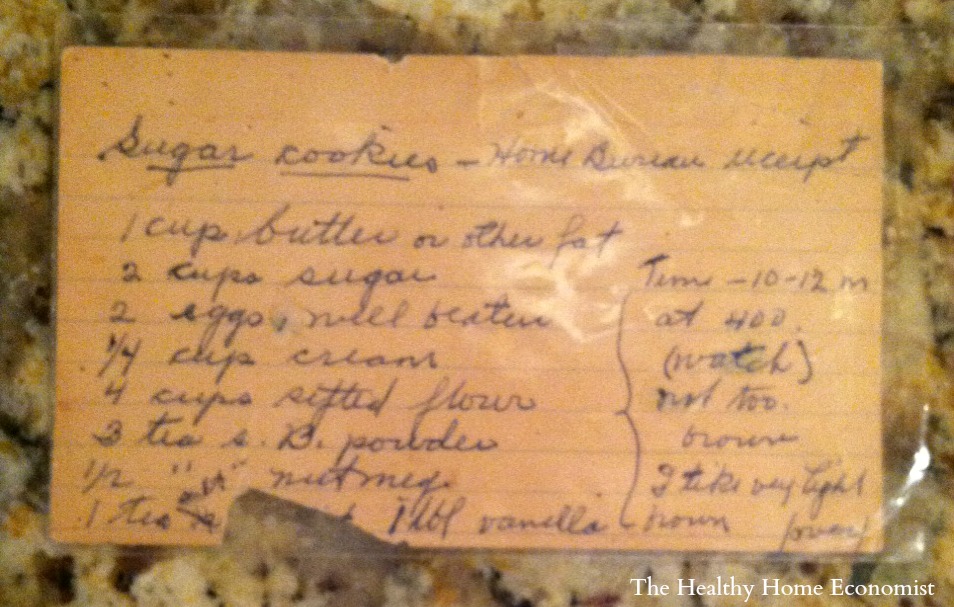 Sugar cookies – Home Bureau receipt
1 cup butter or other fat
2 cups sugar
2 eggs, well beaten
1/4 cup cream
4 cups sifted flour
3 tea s. B. powder
1/2 " " nutmeg
1 tea 1 tbl vanilla
Time – 10-12 m
at 400.
(watch)
not too.
brown
I like very light
brown (over)
The Healthy Home Economist